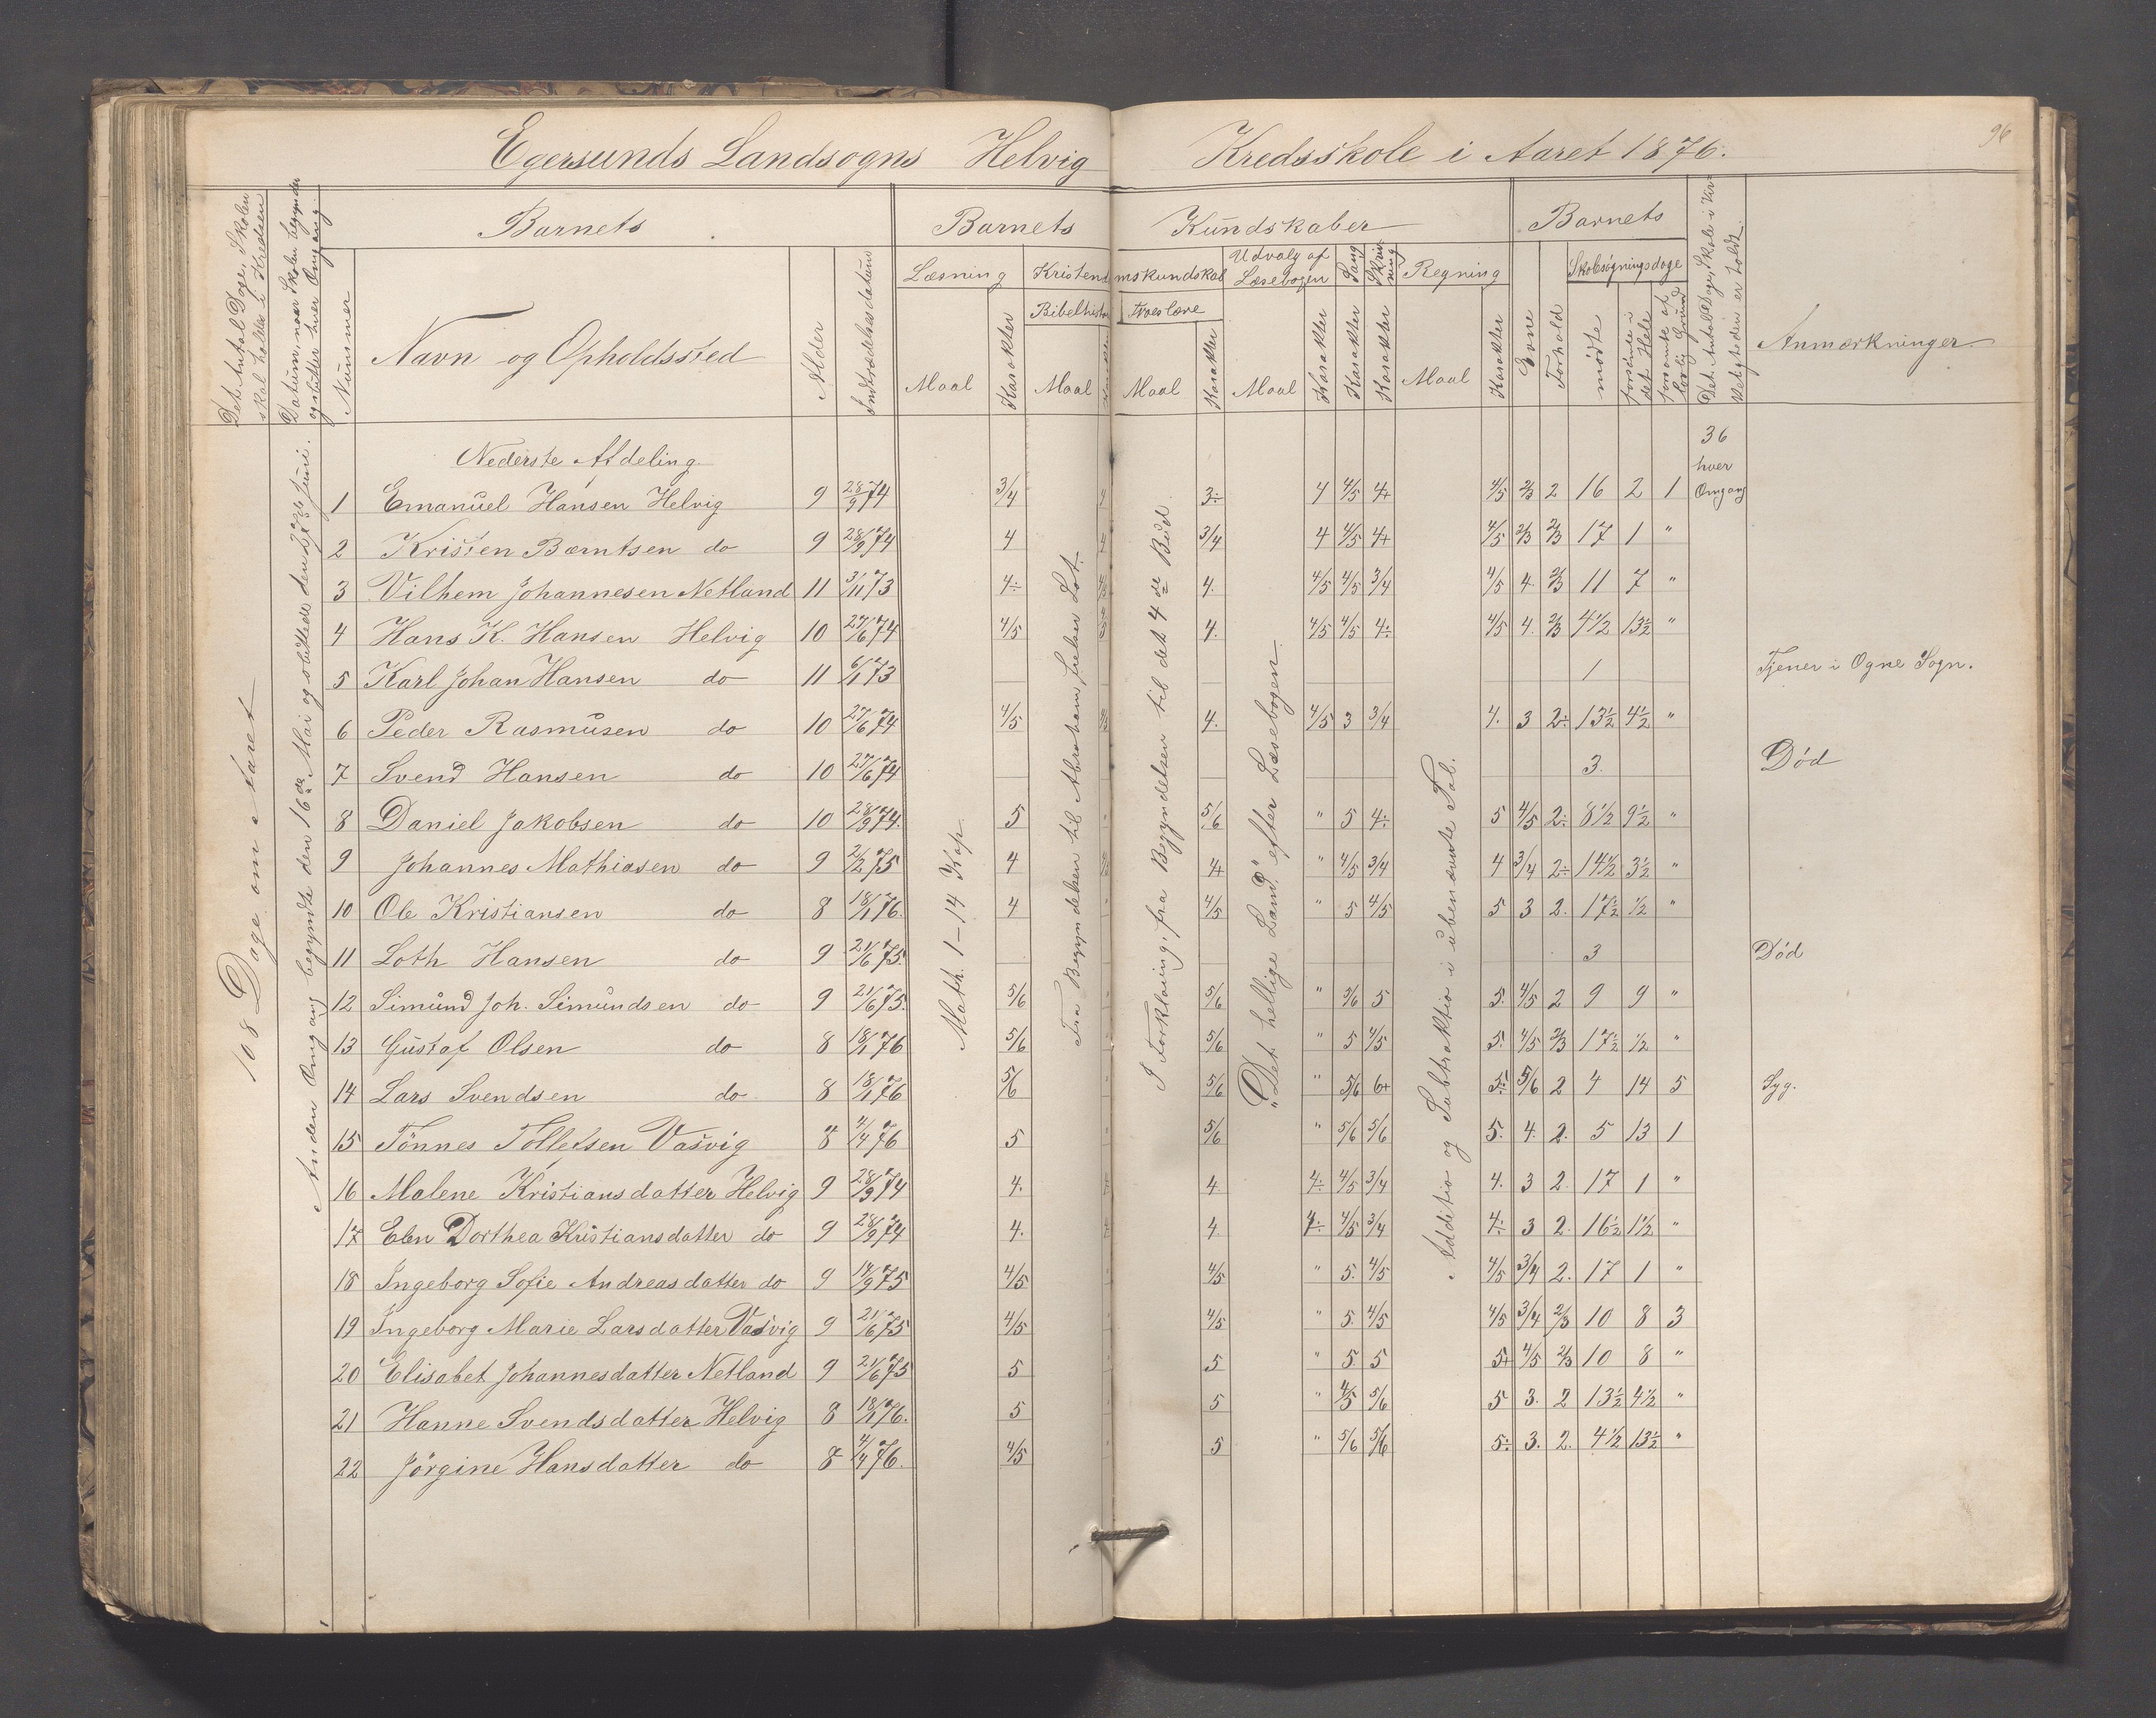 96
Egersunds Landsogns Helvig Kredsskole i Aaret 1876.
Det Antal Dage, Skolen skal holdes i Kredsen
Datum, naar Skolen begynder og slutter hver Omgang.
Nummer
Barnets
Navn og Opholdssted
Alder
Indtrædelsesdatum
Barnets Kundskaber
Læsning
Maal
Karakter
Kristendomskundskab
Bibelhistorie
Maal
Troeslære
Maal
Karakter
Udvalg af Læsebogen
Maal
Karakter
Sang
Karakter
Skrivning
Karakter
Regning
Maal
Karakter
Barnets
Evne
Forhold
Skolesøgningsdage
mødte
forsömte i det Hele
forsømte af lovlig Grund
Det Antal Dage, Skole i Virkeligheden er holdt.
Anmærkninger
108 Dage om Aaret
Anden Omgang begyndte den 16de Mai og sluttede den 27de Juni.
Math. 1-14 Kap.
Fra Begyndelsen til Abraham frelser Lot.
I Forklaring, fra Begyndelsen til det 4de Bud.
"Det hellige Land" efter Læsebogen.
Additio og Subtraktio i ubenævnte Tal.
36 hver Omgang
Nederste Afdeling
1 Emanuel Hansen Helvig 9 28/9 74 3/4 3÷ 4 4/5 4+ 4/5 2/3 2 16 2 1
2 Kristen Bærntsen do 9 28/9 74 4 3/4 4 4/5 4+ 4/5 2/3 2/3 17 1 "
3 Vilhem Johannesen Netland 11 3/11 73 4÷ 4. 4/5 4/5 3/4 4/5 4. 2/3 11 7 "
4 Hans K. Hansen Helvig 10 27/6 74 4/5 4. 4/5 4/5 4÷ 4/5 4. 2/3 4 1/2 13 1/2 "
5 Karl Johan Hansen do 11 6/1 73 1 Tjener i Ogne Sogn.
6 Peder Rasmusen do 10 27/6 74 4/5 4. 4/5 3 3/4 4. 3 2÷ 13 1/2 4 1/2 "
7 Svend Hansen do 10 27/6 74 3. Død
8 Daniel Jakobsen do 10 28/9 74. 5 5/6 " 5 4÷ 5 4/5 2÷ 8 1/2 9 1/2 "
9 Johannes Mathiasen do 9 2/2 75 4 4+ " 4/5 3/4 4 3/4 2÷ 14 1/2 3 1/2 "
10 Ole Kristiansen do 8 18/1 76. 4 4/5 " 5 4/5 5 3 2. 17 1/2 1/2 "
11 Loth Hansen do 9 21/6 75. 3 Død
12 Simund Joh. Simundsen do 9 21/6 75. 5/6 5/6 " 5/6 5 5. 4/5 2 9 9 "
13 Gustaf Olsen do 8 18/1 76 5/6 5/6 " 5 4/5 5. 4/5 2/3 17 1/2 1/2 "
14 Lars Svendsen do 8 18/1 76 5/6 5/6 " 5/6 6+ 5÷ 5/6 2 4 14 5 Syg.
15 Tönnes Tolletsen Vasvig 8 4/4 76 5 5/6 " 5/6 5/6 5. 4. 2. 5 13 1
16 Malene Kristiansdatter Helvig 9 28/9 74 4. 4. 4÷ 4/5 3/4 4. 3 2. 17 1 "
17 Elen Dorthea Kristiansdatter do 9 28/9 74 4. 4 4÷ 4/5 3/4 4÷ 3 2. 16 1/2 1 1/2 "
18 Ingeborg Sofie Andreasdatter do 9 14/9 75 4/5 4/5 " 5. 4/5 4/5 3/4 2. 17 1 "
19 Ingeborg Marie Larsdatter Vasvig 9 21/6 75 4/5 4/5 " 5. 4/5 4/5 3/4 2/3 10 8 3
20 Elisabet Johannesdatter Netland 9 21/6 75 5 5 " 5. 5 5+ 4/5 2/3 10 8 "
21 Hanne Svendsdatter Helvig 8 18/1 76. 5 5 " 4/5 5/6 5 3. 2 13 1/2 4 1/2 "
22 Jörgine Hansdatter do 8 4/4 76. 4/5 5 " 5/6 5/6 5÷ 3. 2. 4 1/2 13 1/2 "